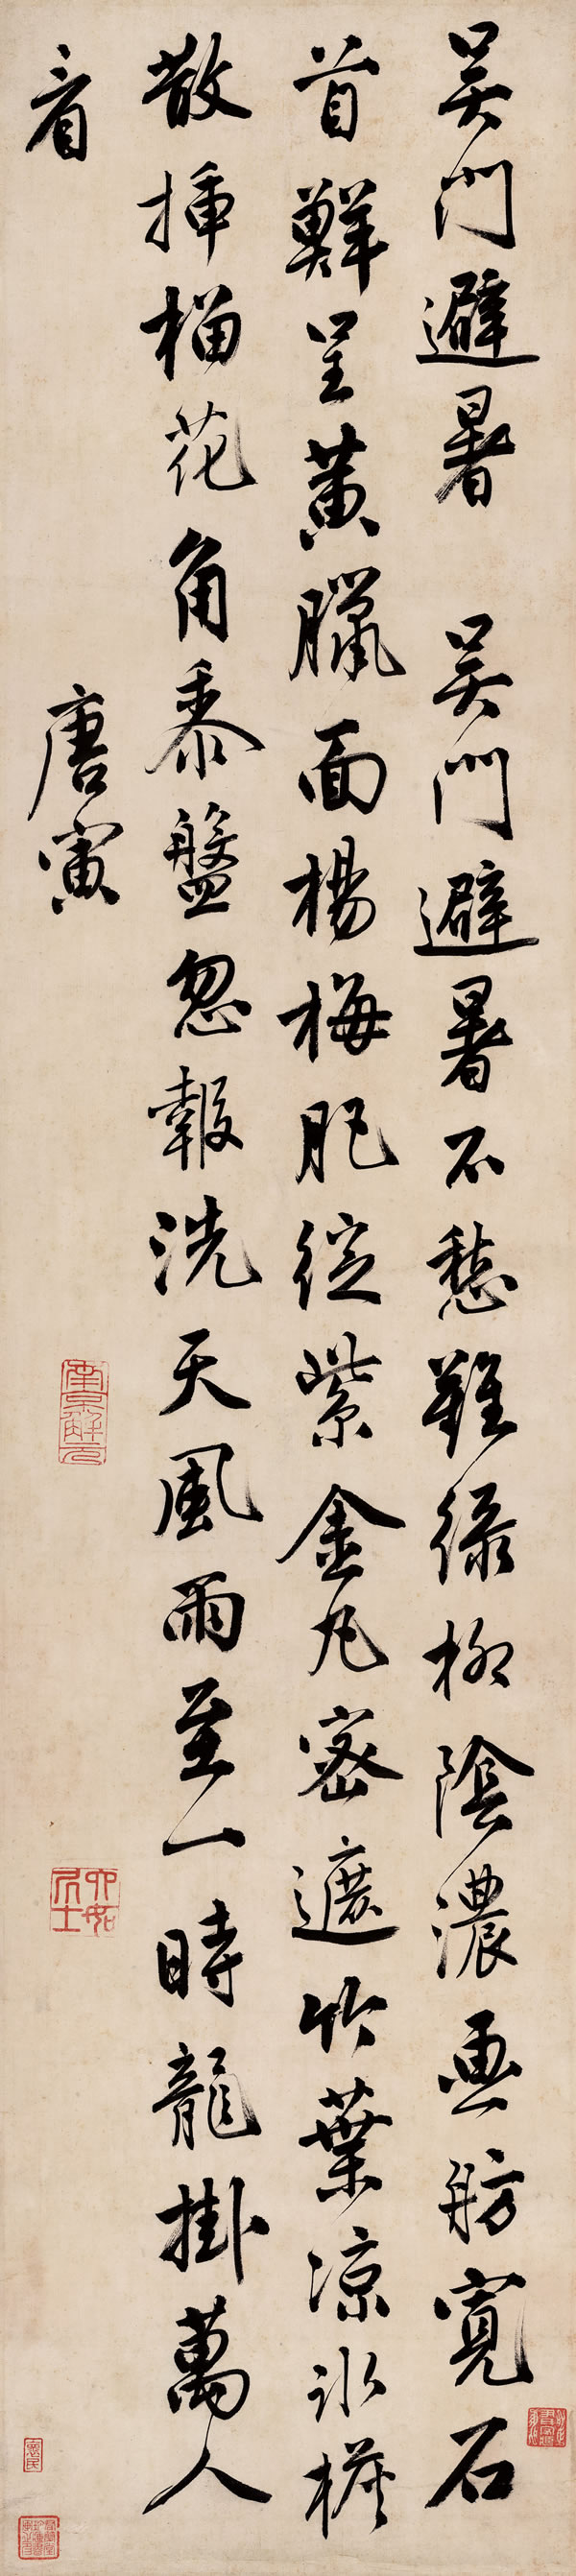 吳門避暑　吳門避暑不愁難綠柳陰濃画舫寬石
首鮮呈黃臘面楊梅肥綻紫金丸密遮竹葉涼冰
散插榴花角黍盤忽報洗天風雨至一時龍掛萬人
看
唐寅
南京解元
六如居士